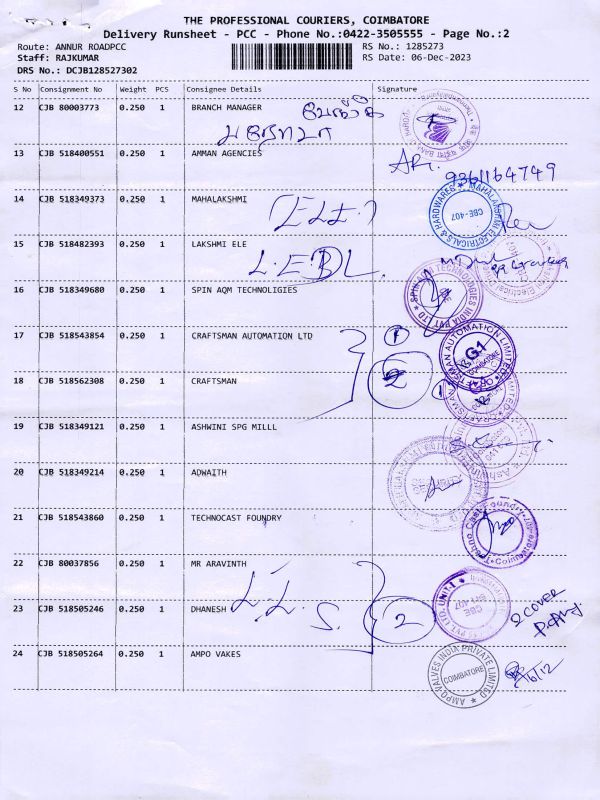 THE PROFESSIONAL COURIERS, COIMBATORE
Delivery Runsheet - PCC - Phone No.:0422-3505555 - Page No.:2
Route: ANNUR ROADPCC RS No.: 1285273
Staff: RAJKUMAR RS Date: 06-Dec-2023
DRS No.: DCJB128527302
S No Consignment No Weight PCS Consignee Details Signature
12 CJB 80003773 0.250 1 BRANCH MANAGER
13 CJB 518400551 0.250 1 AMMAN AGENCIES
9361164749
14 CJB 518349373 0.250 1 MAHALAKSHMI
MAHALAKSHMI ELECTRICALS & HARDWARES
CBE-407
15 CJB 518482393 0.250 1 LAKSHMI ELE
16 CJB 518349680 0.250 1 SPIN AQM TECHNOLIGIES
SPIN TECHNOLOGIES INDIA PVT LTD
17 CJB 518543854 0.250 1 CRAFTSMAN AUTOMATION LTD 1
CRAFTSMAN AUTOMATION LIMITED
G1
COIMBATORE
18 CJB 518562308 0.250 1 CRAFTSMAN 2
19 CJB 518349121 0.250 1 ASHWINI SPG MILLL
20 CJB 518349214 0.250 1 ADWAITH
21 CJB 518543860 0.250 1 TECHNOCAST FOUNDRY
Techno Cast Foundry
22 CJB 80037856 0.250 1 MR ARAVINTH
23 CJB 518505246 0.250 1 DHANESH L.L.S. 2
CBE
2 COVER
24 CJB 518505264 0.250 1 AMPO VAKES
AMPO VALVES INDIA PRIVATE LIMITED
COIMBATORE
6/12